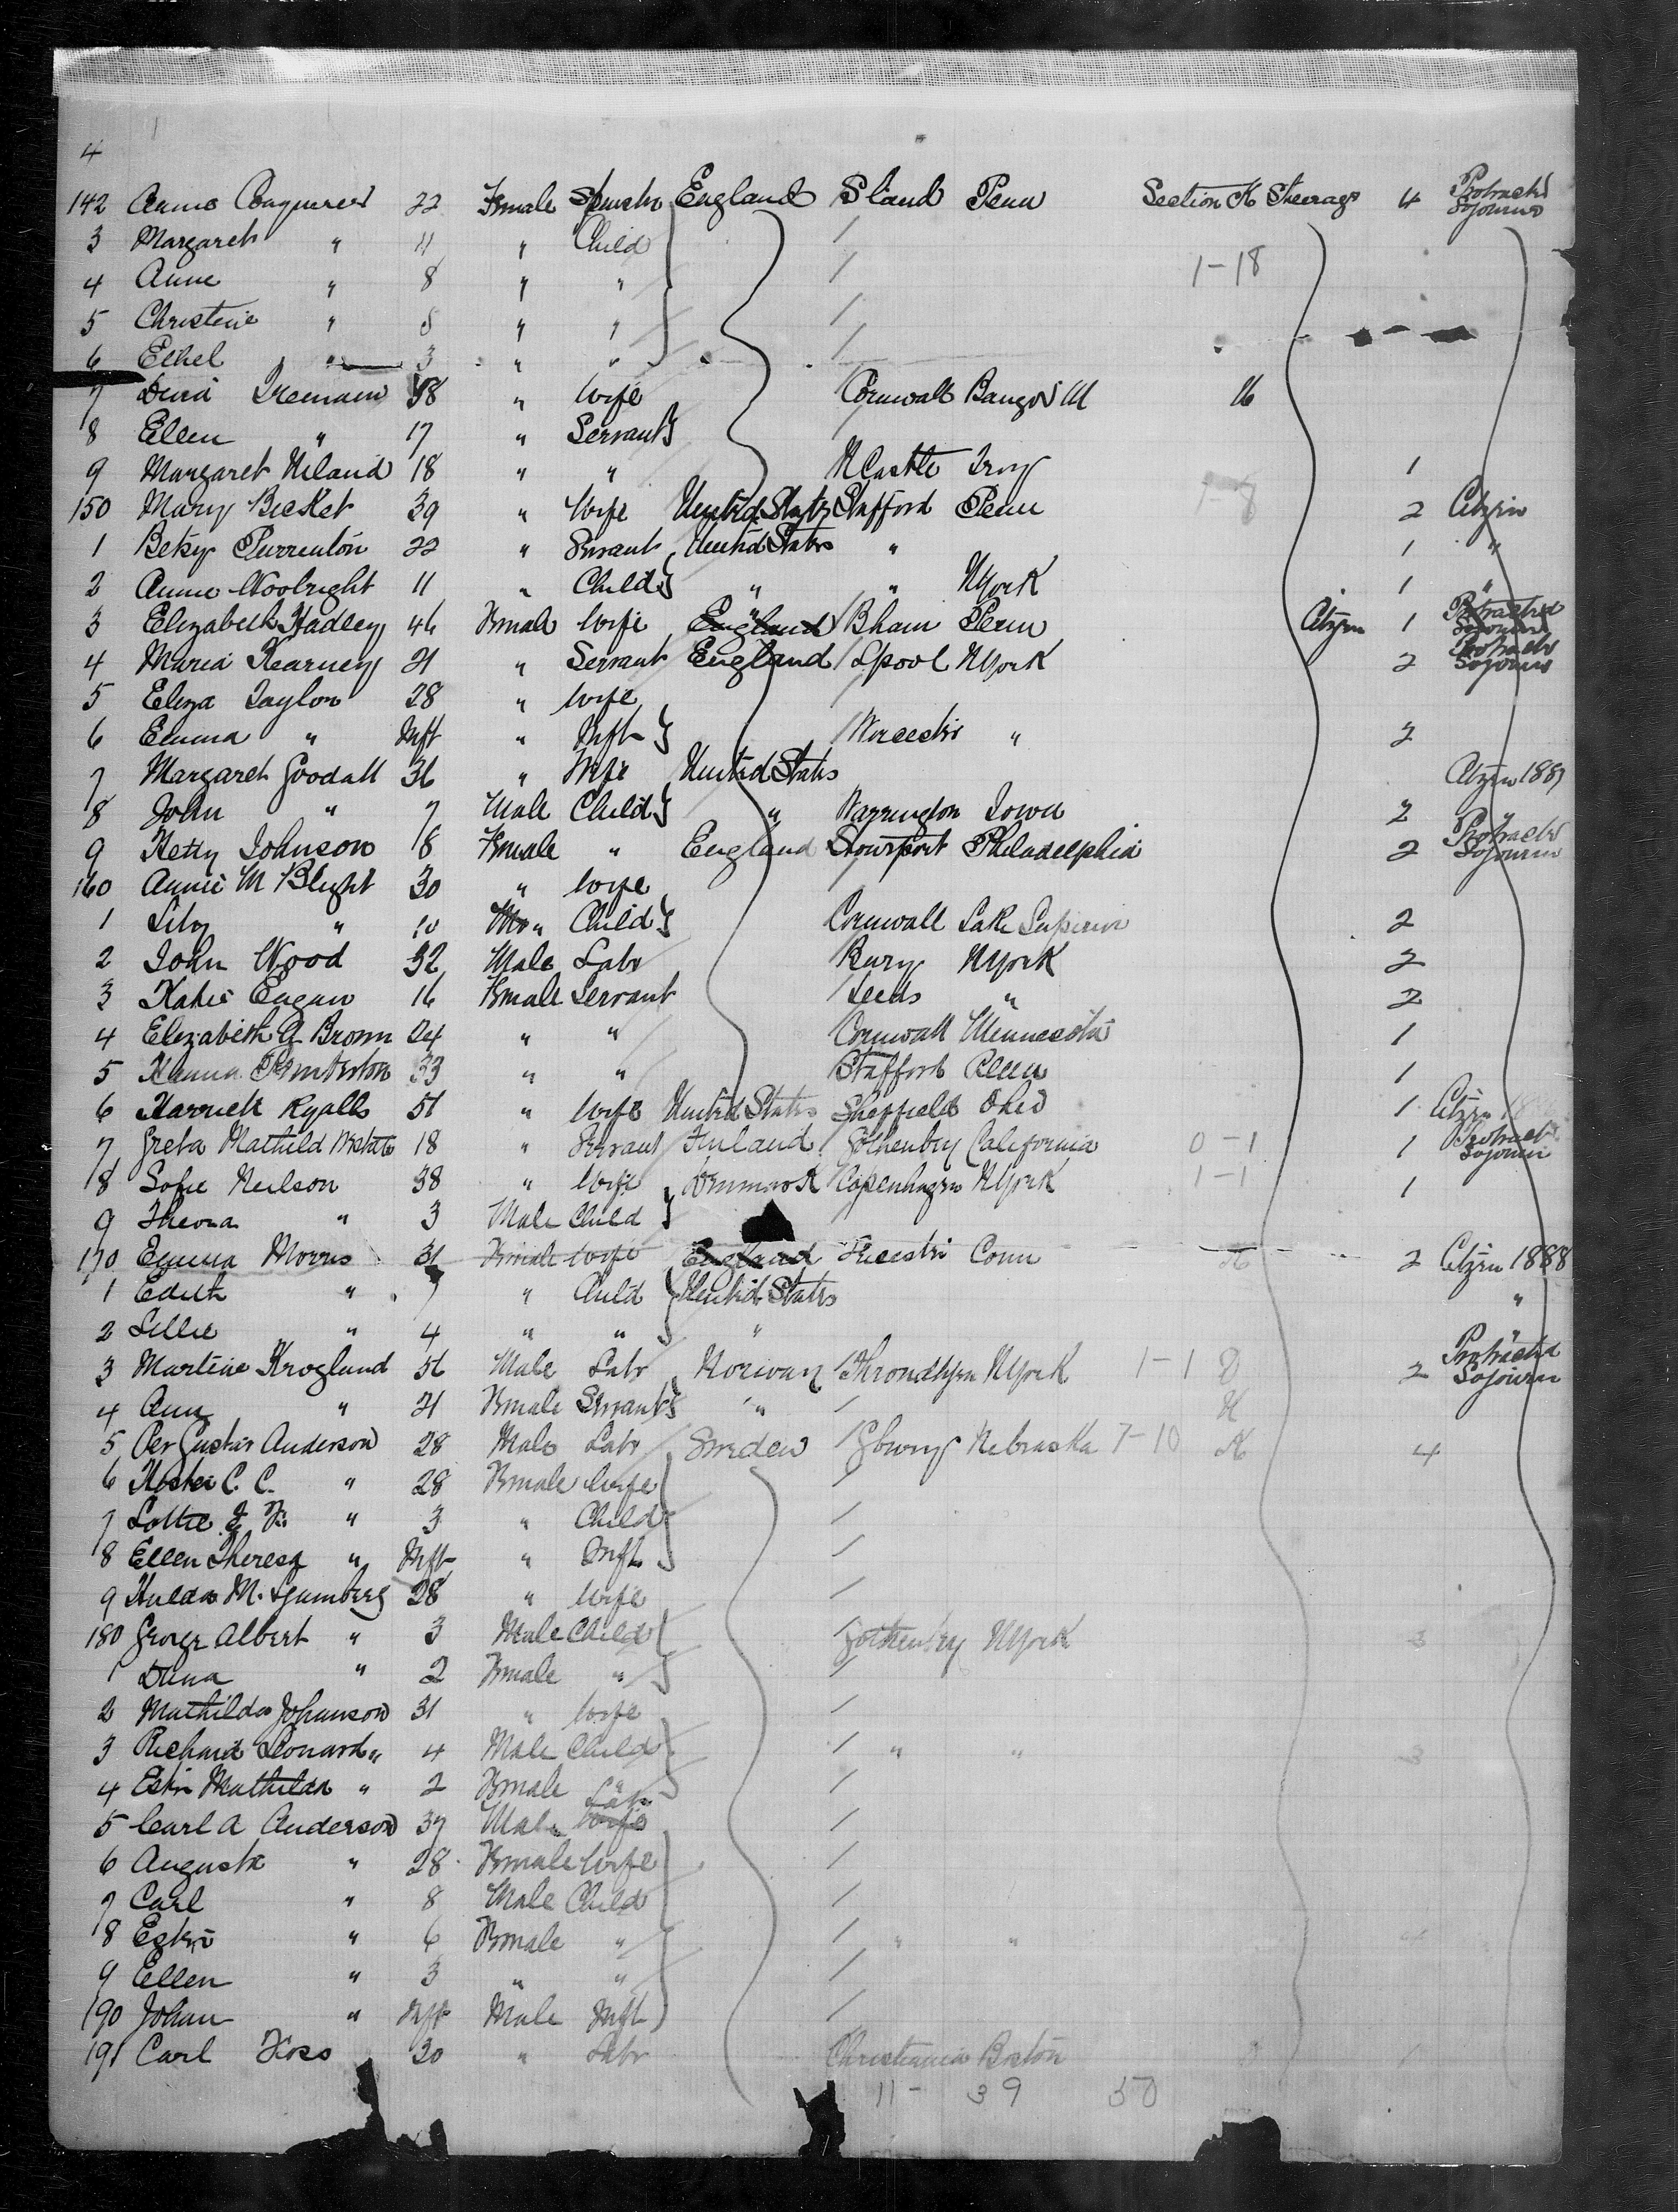 4
142 Annie 22 Female England Sland Penn Section K Steerage 4 Protracted Sojourn
3 Margaret " 11 " Child / 1-18
4 Anne " 8 " " /
5 Christine " 8 " " /
6 Ethel " 3 " " /
7 38 " Wife Cornwall Bangor
8 Ellen " 17 " Servant /
9 Margaret Niland 18 " " NCastle Troy 1
150 Mary Becket 39 " Wife United States Stafford Penn 1-8 2 Citzen
1 Betsy Purrenton 22 " Servant United States " 1 "
2 Annie Woolright 11 " Child " " NYork 1 "
3 Elizabeth Hadley 46 Female Wife England Bham Penn Citzen 1 Protracted Sojourn
4 Maria Kearney 21 " Servant England Lpool NYork 2 Protracted Sojourn
5 Eliza Taylor 28 " Wife /
6 Emma " Inft " Inft / Worcester " 2
7 Margaret Goodall 36 " Wife United States Citzen 1887
8 John " 7 Male Child " Warrington Iowa 2
9 Hetty Johnson 8 Female " England Stourport Philadelphia 2 Protracted Sojourn
160 Annie M Blight 30 " Wife /
1 Lily " 10 " Child Cornwall Lake Superior 2
2 John Wood 32 Male Labr / Bury NYork 2
3 Katie Eagan 16 Female Servant / Leeds " 2
4 Elizabeth A Brown 24 " " Cornwall Minnesota 1
5 Hanna Pemberton 33 " " Stafford Penn 1
6 Harriett Ryalls 51 " Wife United States Sheffield Ohio 1 Citzen
7 Greta Mathild 18 " Servant Finland Gothenburg California 0-1 1 Protract Sojourn
8 Sofie Neilson 38 " Wife Denmark Copenhagen NYork 1-1 1
9 " 3 Male Child
170 Emma Morris 31 Female Wife England Leicester Conn 2 Citzen 1888
1 Edith " 7 " Child United States "
2 Lillie " 4 " " " "
3 Martine Krogland 56 Male Labr Norway / Throndhjem NYork 1-1 2 Protracted Sojourn
4 Ann " 21 Female Servant " /
5 Per Gustav Anderson 28 Male Labr Sweden / Gburg Nebraska 7-10 K 4
6 C. C. " 28 Female Wife /
7 Lottie " 3 " Child /
8 Ellen Theresa " Inft " Inft /
9 Hulda M. 28 " Wife /
180 George Albert " 3 Male Child / Gothenburg NYork 3
1 " 2 Female " /
2 Mathilda Johanson 31 " Wife /
3 Richard Leonard " 4 Male Child / " " 3
4 Mathilda " 2 Female " /
5 Carl A Anderson 37 Male Labr Wife /
6 Augusta " 28 Female Wife /
7 Carl " 8 Male Child /
8 " 6 Female " / " " 4
9 Ellen " 3 " " /
190 Johan " Inft Male Inft /
191 Carl 30 " Labr Christiania Boston 1
11- 39 50